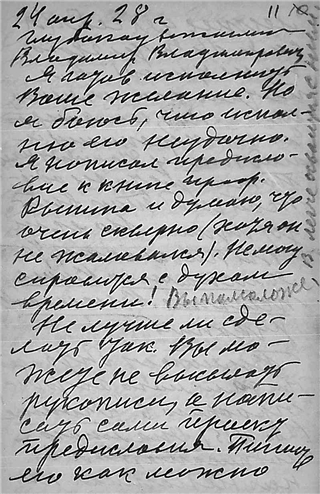 24 апр. 28 г
Глубокоуважаемый
Владимир Владимирович,
Я готов исполнить
Ваше желание. Но
я боюсь, что испол-
ню его неудачно.
Я написал предисло-
вие к книге проф.
и думаю, что
очень скверно (хотя он
не жаловался). Не могу
справиться с духом
времени!
Не лучше ли сде-
лать так. Вы мо-
жете не высылать
рукописи, а напи-
сать сами проект
предисловия. Пишу
его как можно